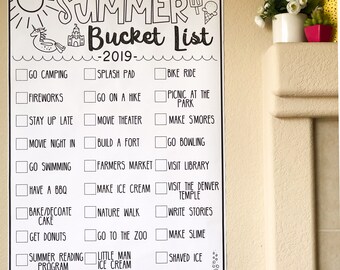 SUMMER
Bucket List
-2019-
GO CAMPING
SPLASH PAD
BIKE RIDE
FIREWORKS
GO ON A HIKE
PICNIC AT THE
PARK
STAY UP LATE
MOVIE THEATER
MAKE S'MORES
MOVIE NIGHT IN
BUILD A FORT
GO BOWLING
GO SWIMMING
FARMERS MARKET
VISIT LIBRARY
HAVE A BBQ
MAKE ICE CREAM
VISIT THE DENVER
TEMPLE
BAKE/DECOATE
CAKE
NATURE WALK
WRITE STORIES
GET DONUTS
GO TO THE ZOO
MAKE SLIME
SUMMER READING
PROGRAM
LITTLE MAN
ICE CREAM
SHAVED ICE